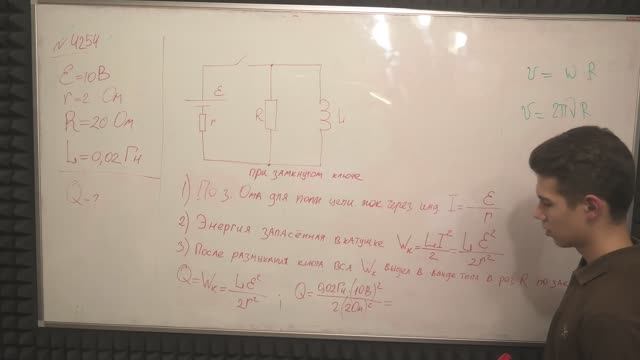 № 4254
Ɛ = 10В
r = 2 Ом
R = 20 Ом
L = 0,02 Гн
Q = ?
Ɛ
r
R
L
υ = ω R
υ = 2πν R
при замкнутом ключе
1) По з. Ома для полн цепи ток через инд I = Ɛ/r
2) Энергия запасённая в катушке Wк = LI²/2 = LƐ²/2r²
3) После размыкания ключа вся Wк выдел в виде тепл в рез R
Q = Wк = LƐ²/2r² ; Q = 0,02Гн·(10В)²/2(2Ом)² =